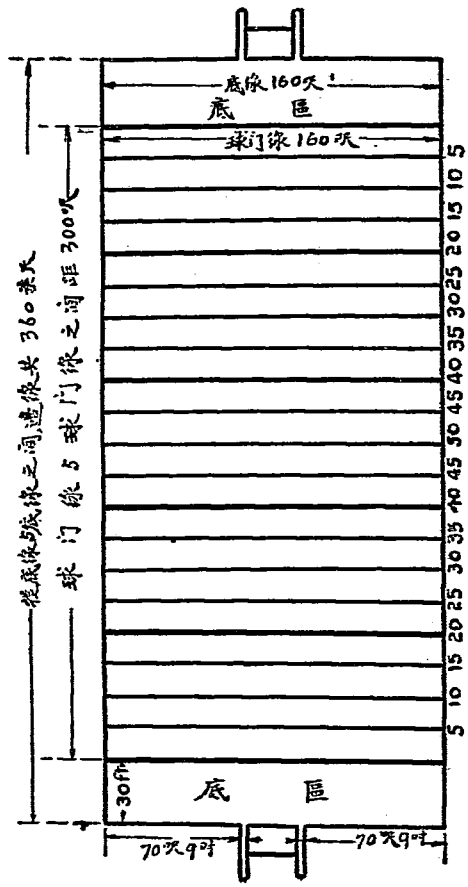 底線160呎
底 區
球门線160呎
5
10
15
20
25
30
35
40
45
50
45
40
35
30
25
20
15
10
5
從底線与底線之间,邊線共 360英尺
球门線与球门線之间距300呎
30ft
底 區
70呎9吋
70呎9吋